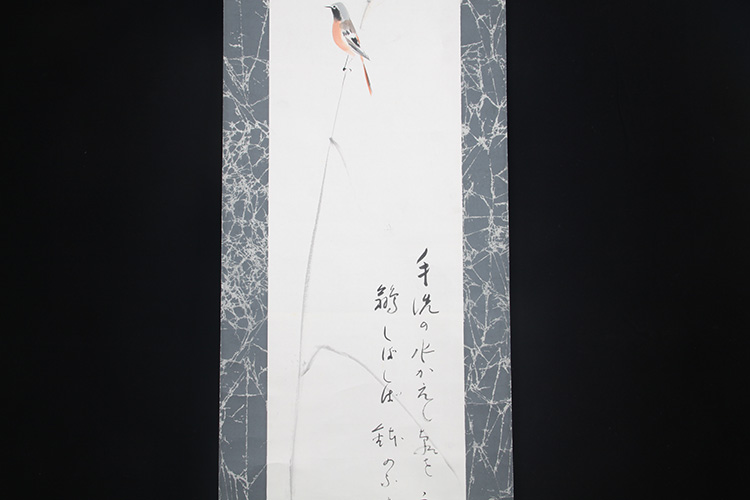 手洗の水かえし気を
鶲しばしば鉢のふ